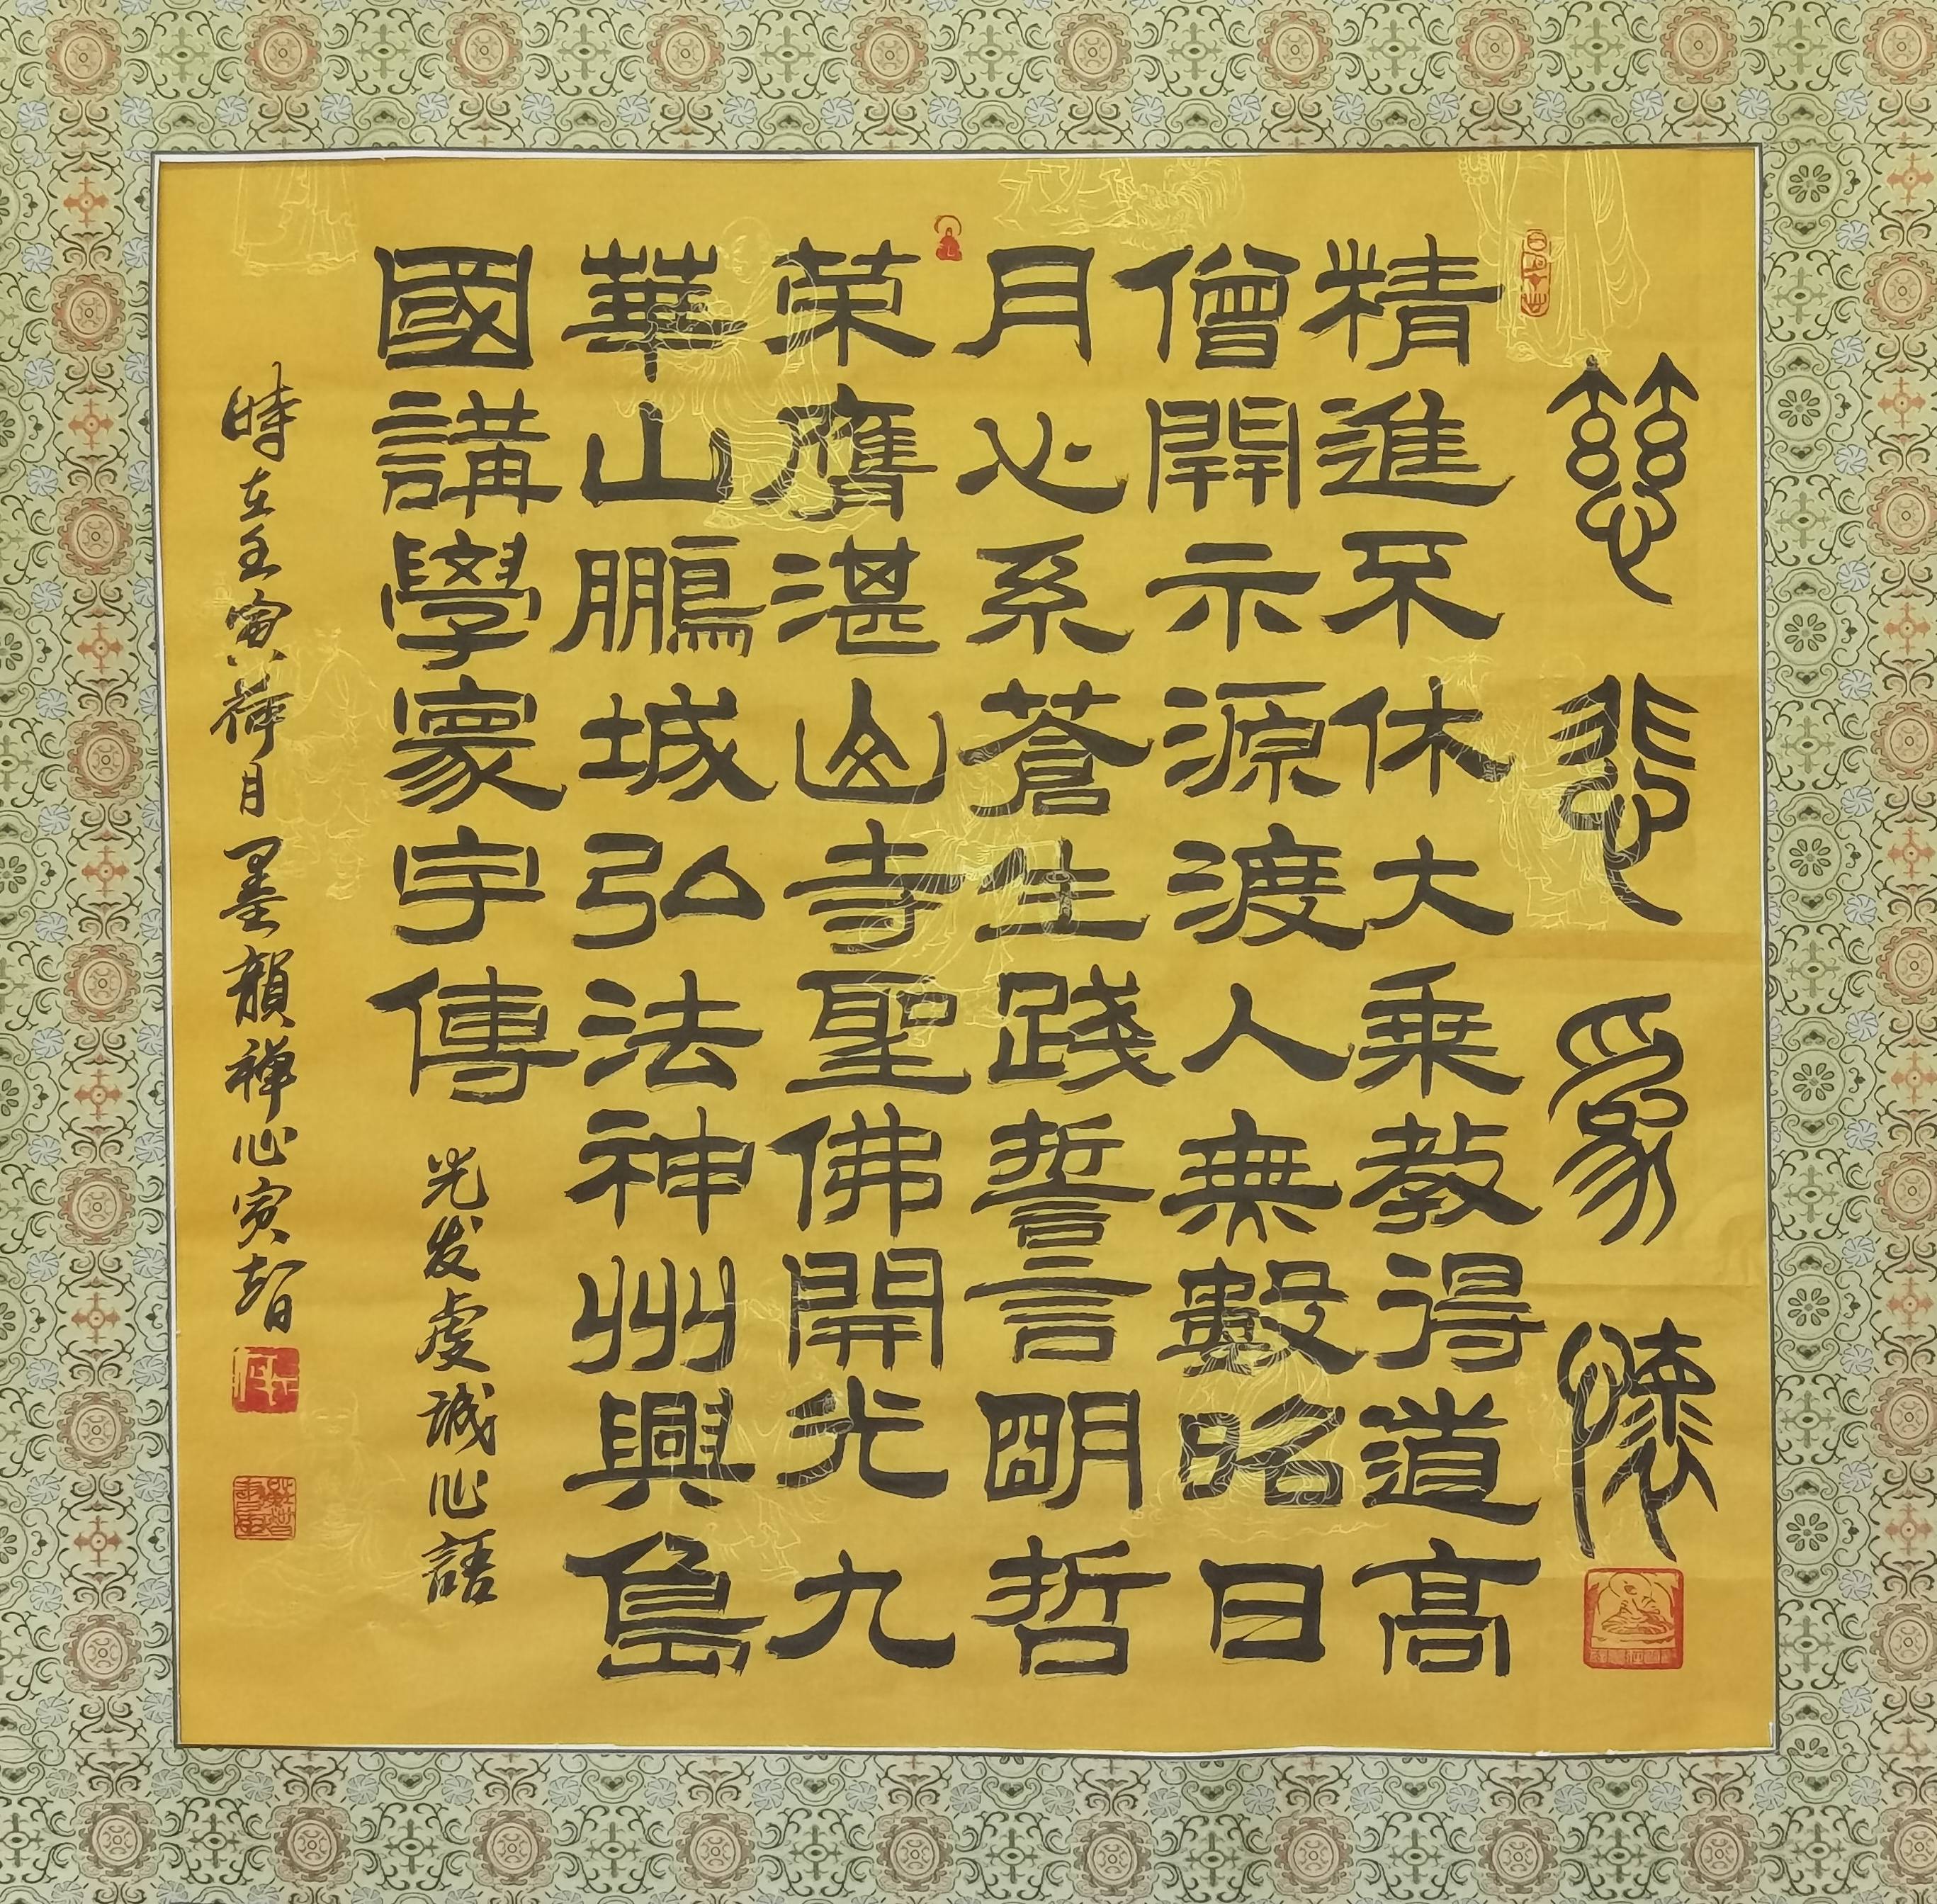 慈悲為懷
精進不休大乘教得道高
僧開示源渡人無數昭日
月心系蒼生踐誓言明哲
荣膺湛山寺聖佛開光九
華山鵬城弘法神州興島
國講學寰宇傳
光发虔誠心語
時在壬寅荷月墨韻禪心